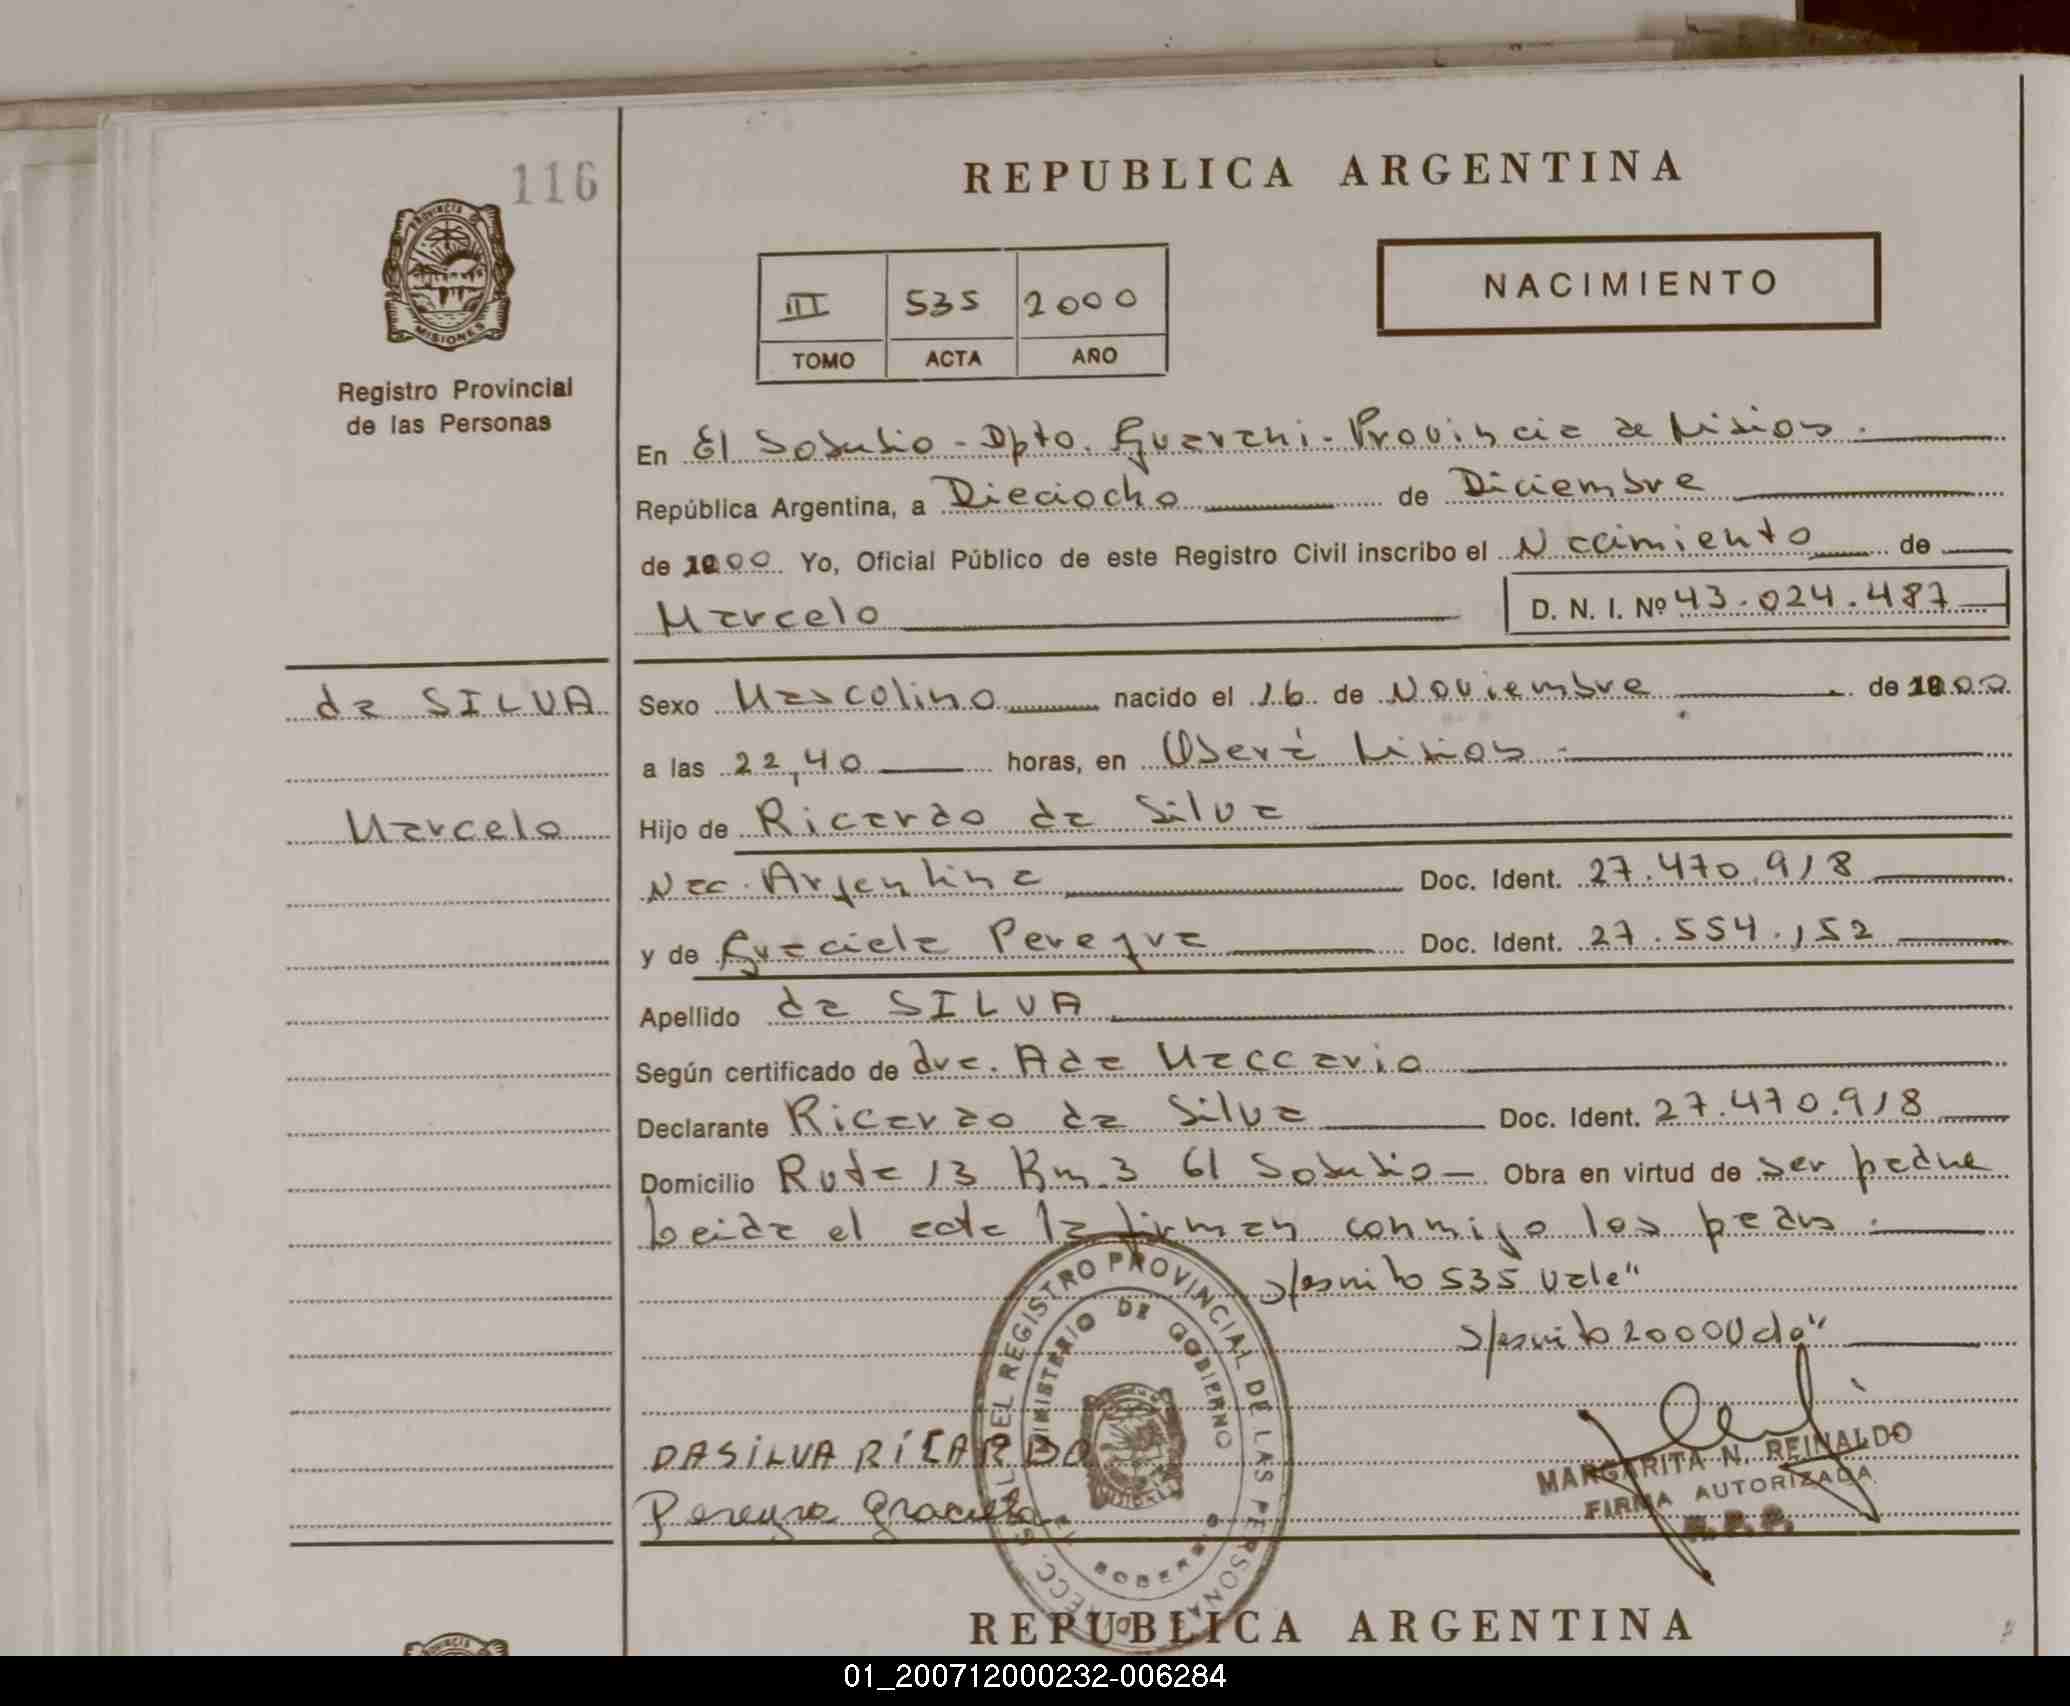 116
REPUBLICA ARGENTINA
PROVINCIA DE
MISIONES
Registro Provincial
de las Personas
III 535 2000
TOMO ACTA AÑO
NACIMIENTO
En El Soberbio - Dpto. Guarani - Provincia de Misiones.
República Argentina, a Dieciocho de Diciembre
de 2000 Yo, Oficial Público de este Registro Civil inscribo el Nacimiento de
Marcelo D. N. I. Nº 43.024.487
da SILVA
Sexo Masculino nacido el 16 de Noviembre de 2000
a las 22,40 horas, en Oberá Misiones.
Marcelo
Hijo de Ricardo da Silva
Nac. Argentina Doc. Ident. 27.470.918
y de Graciela Pereyra Doc. Ident. 27.554.152
Apellido da SILVA
Según certificado de dra. Ada Maccario
Declarante Ricardo da Silva Doc. Ident. 27.470.918
Domicilio Ruta 13 Km. 3 El Soberbio Obra en virtud de ser padre
Leida el acta la firman conmigo los padres.
s/escrito 535 Vale"
s/escrito 2000 Vale"
REGISTRO PROVINCIAL DE LAS PERSONAS
MINISTERIO DE GOBIERNO
DASILVA RICARDO
Pereyra Graciela
MARGARITA N. REINALDO
FIRMA AUTORIZADA
REPUBLICA ARGENTINA
01_200712000232-006284